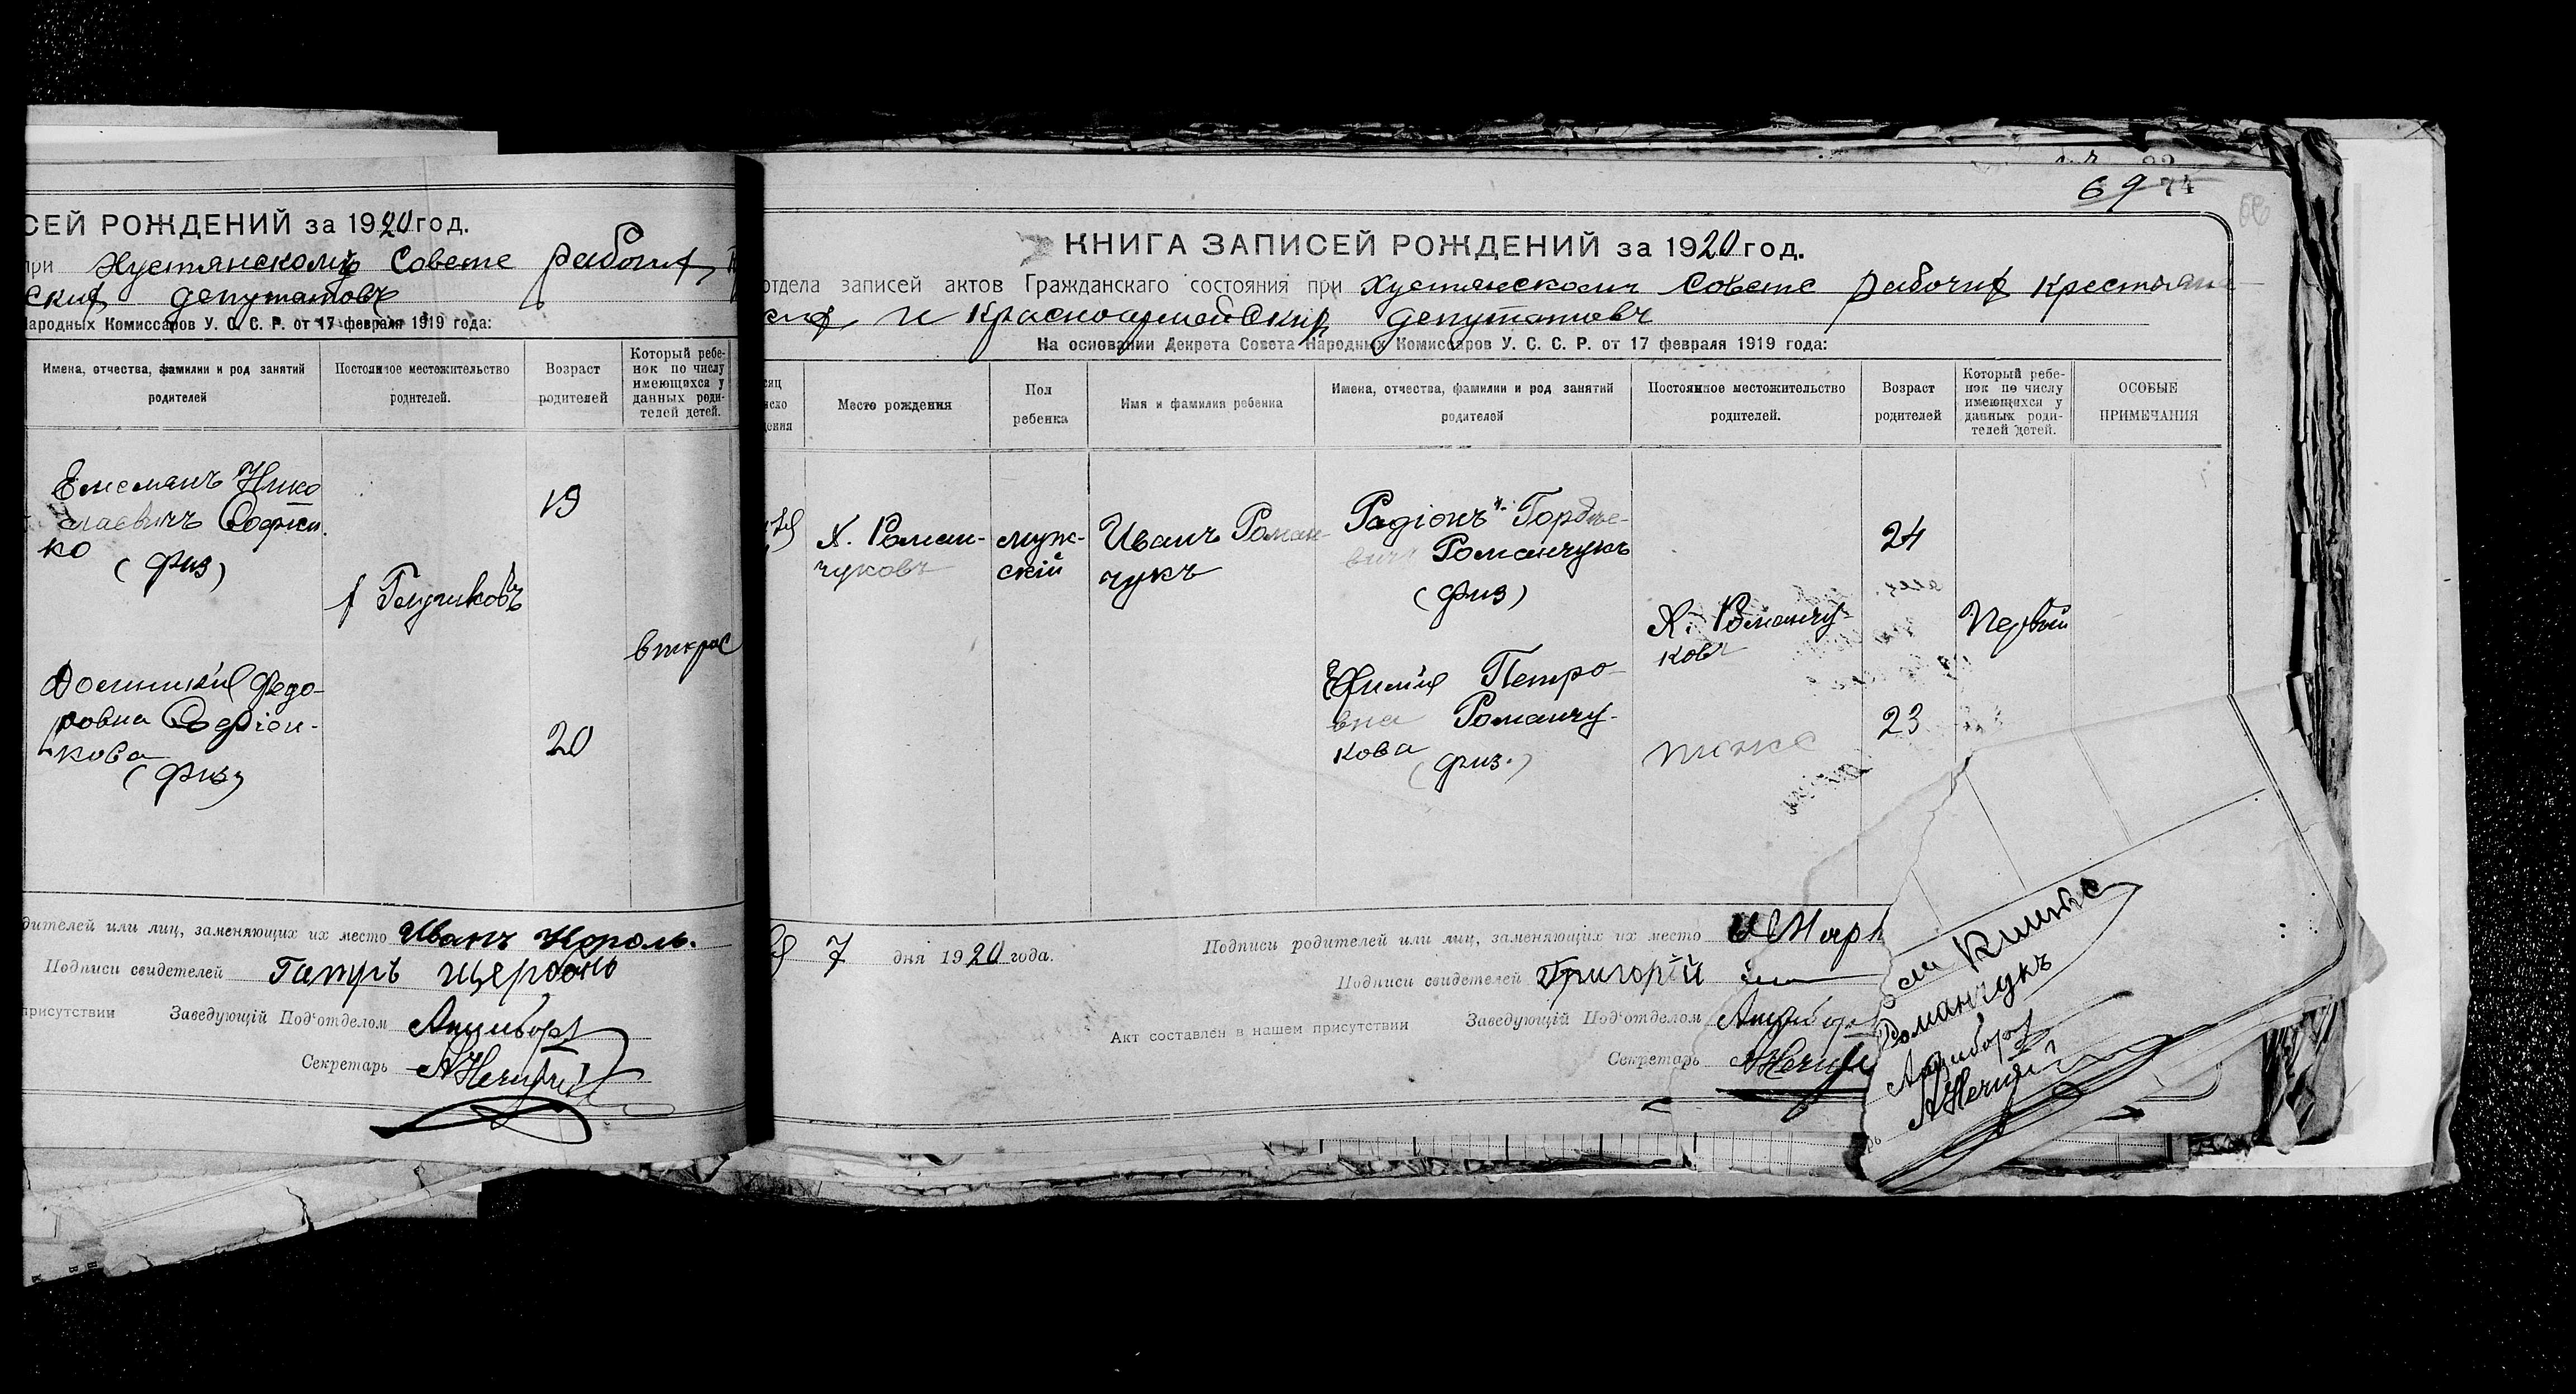 СЕЙ РОЖДЕНИЙ за 1920 год.
при Хустянскомъ Совете рабочих
ских депутатовъ
Народных Комиссаров У. С. С. Р. от 17 февраля 1919 года:
Имена, отчества, фамилии и род занятий
родителей
Постоянное местожительство
родителей.
Возраст
родителей
Который ребе-
нок по числу
имеющихся у
данных роди-
телей детей.
Нико
лаевичъ
ко
(физ)
19
20
Федо-
ровна
кова
(физ)
дителей или лиц, заменяющих их место Иванъ Король.
Подписи свидетелей Петръ Щербань
присутствии Заведующій Под'отделом
Секретарь
69 74
КНИГА ЗАПИСЕЙ РОЖДЕНИЙ за 1920 год.
отдела записей актов Гражданскаго состояния при Хустянском Совете рабочих крестьян
ских и красноармейских депутатовъ
На основании Декрета Совета Народных Комиссаров У. С. С. Р. от 17 февраля 1919 года:
Место рождения
Пол
ребенка
Имя и фамилия ребенка
Имена, отчества, фамилии и род занятий
родителей
Постоянное местожительство
родителей.
Возраст
родителей
Который ребе-
нок по числу
имеющихся у
данных роди-
телей детей.
ОСОБЫЕ
ПРИМЕЧАНИЯ
Х. Роман-
чуковъ
муж-
скій
Иванъ Роман-
чукъ
Радіонъ Гордѣе-
вичъ Романчукъ
(физ)
Х. Романчу-
ковъ
24
Первый
Ефимія Петро-
вна Романчу-
кова
(физ.)
тоже
23
7 дня 1920 года.
Подписи родителей или лиц, заменяющих их место
Подписи свидетелей Григорій
Акт составлен в нашем присутствии Заведующій Под'отделом
Секретарь
Романчукъ